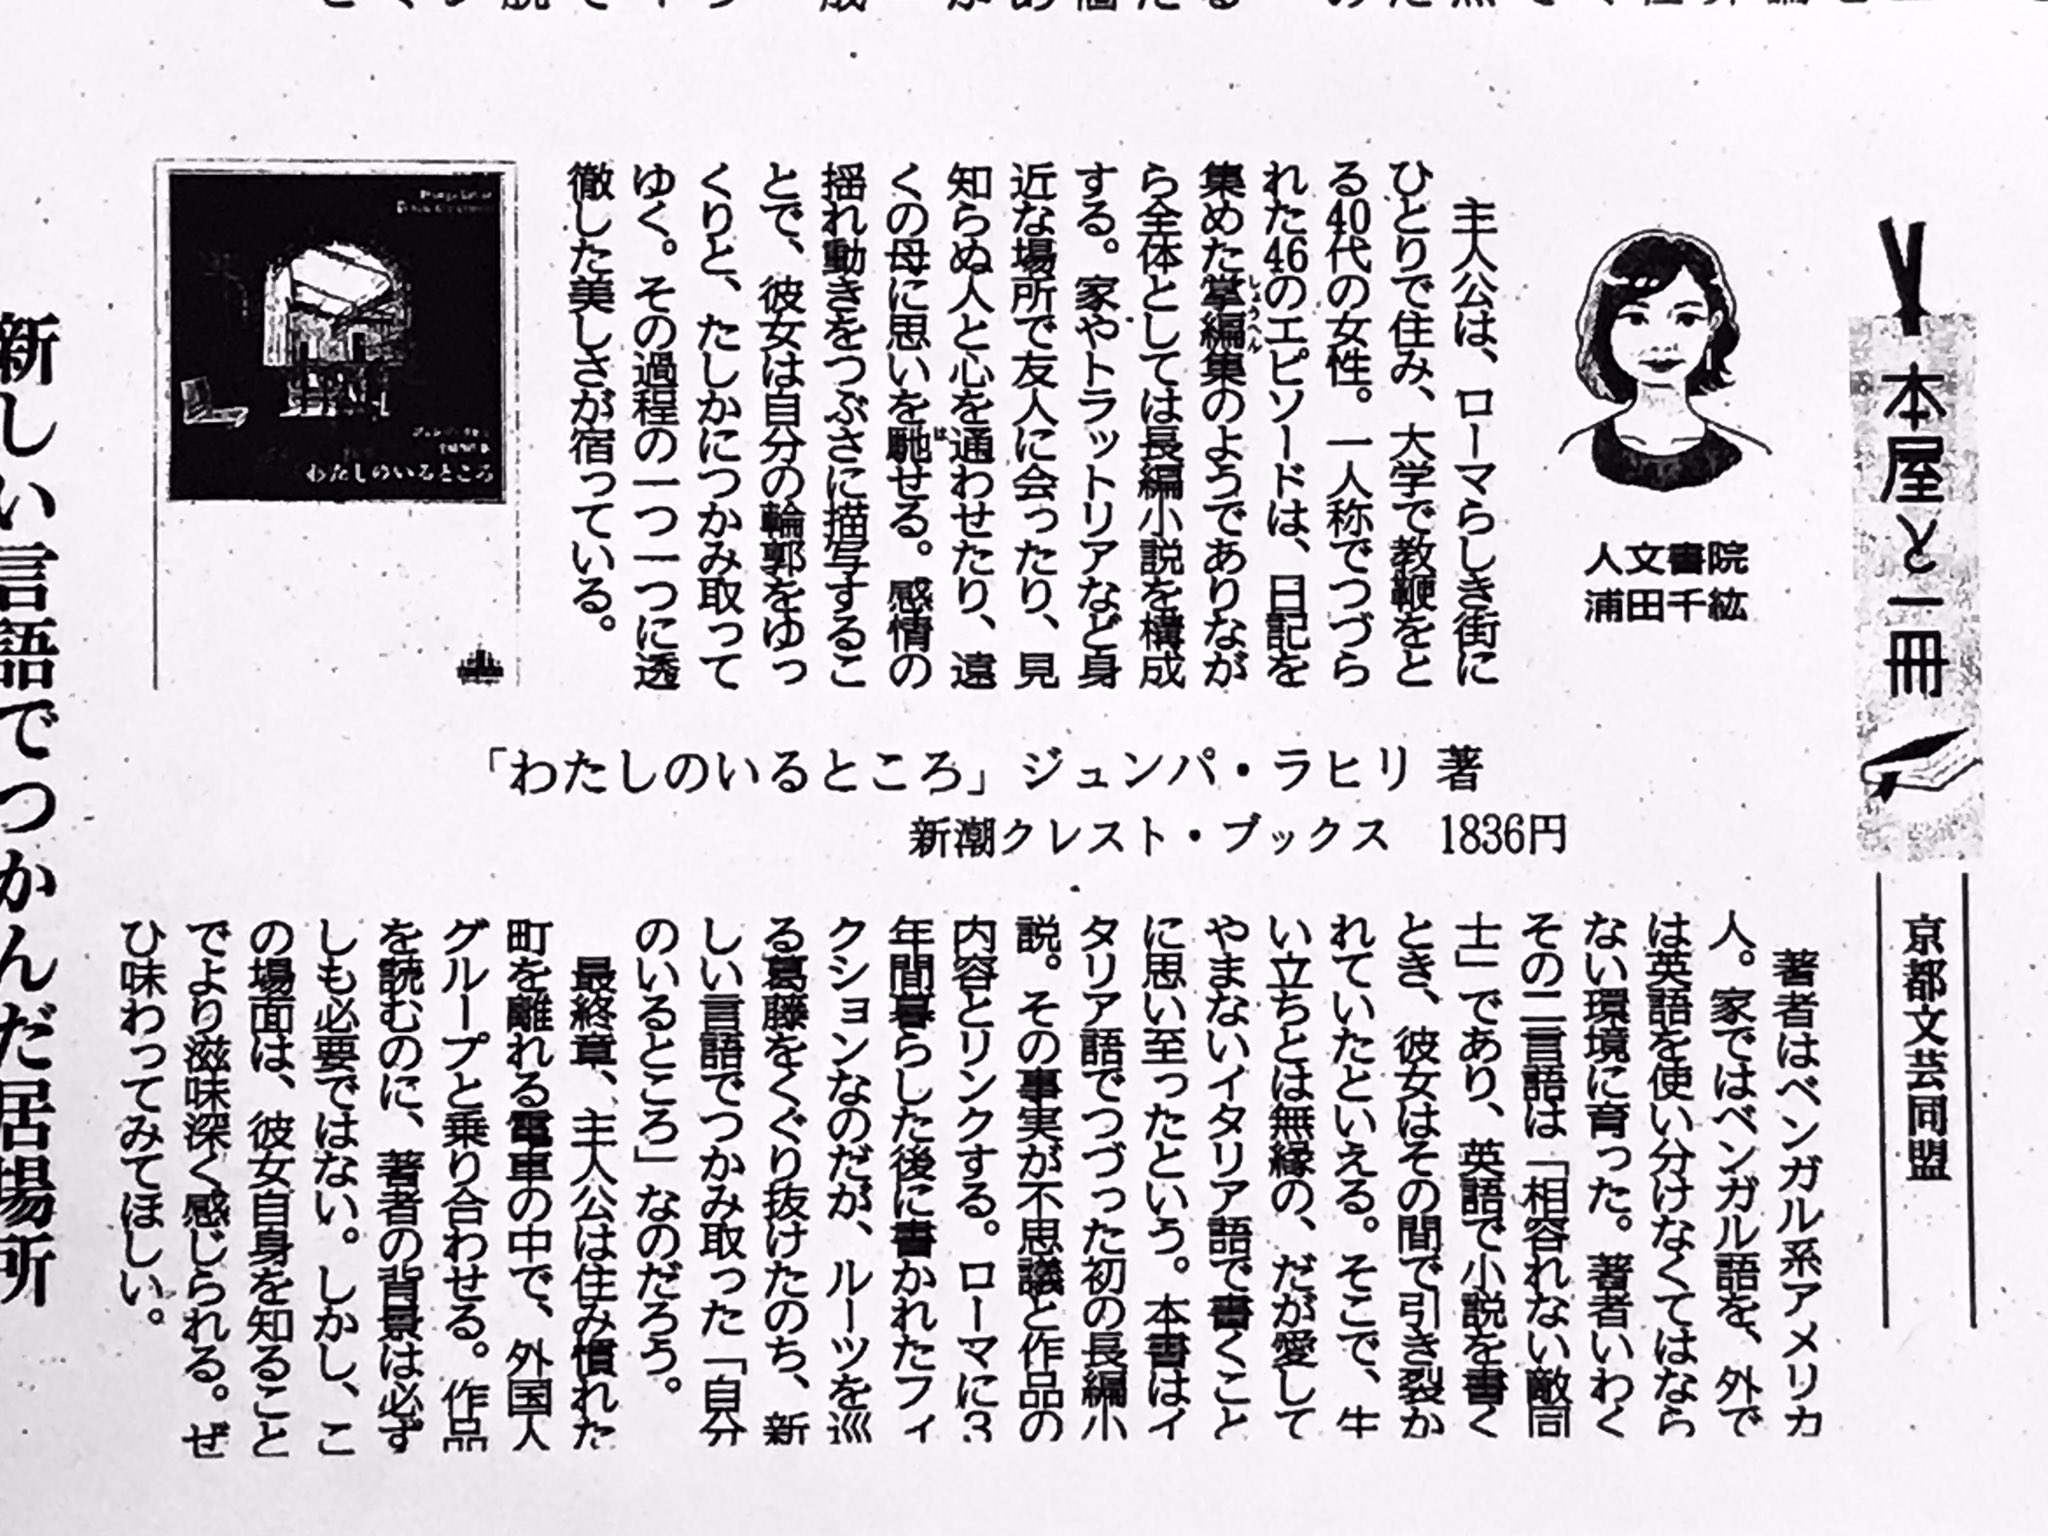 本屋と一冊
京都文芸同盟
人文書院
浦田千紘
主人公は、ローマらしき街に
ひとりで住み、大学で教鞭をと
る40代の女性。一人称でつづら
れた46のエピソードは、日記を
集めた掌編集のようでありなが
ら全体としては長編小説を構成
する。家やトラットリアなど身
近な場所で友人に会ったり、見
知らぬ人と心を通わせたり、遠
くの母に思いを馳せる。感情の
揺れ動きをつぶさに描写するこ
とで、彼女は自分の輪郭をゆっ
くりと、たしかにつかみ取って
ゆく。その過程の一つ一つに透
徹した美しさが宿っている。
わたしのいるところ
「わたしのいるところ」ジュンパ・ラヒリ 著
新潮クレスト・ブックス 1836円
著者はベンガル系アメリカ
人。家ではベンガル語を、外で
は英語を使い分けなくてはなら
ない環境に育った。著者いわく
その二言語は「相容れない敵同
士」であり、英語で小説を書く
とき、彼女はその間で引き裂か
れていたといえる。そこで、生
い立ちとは無縁の、だが愛して
やまないイタリア語で書くこと
に思い至ったという。本書はイ
タリア語でつづった初の長編小
説。その事実が不思議と作品の
内容とリンクする。ローマに3
年間暮らした後に書かれたフィ
クションなのだが、ルーツを巡
る葛藤をくぐり抜けたのち、新
しい言語でつかみ取った「自分
のいるところ」なのだろう。
最終章、主人公は住み慣れた
町を離れる電車の中で、外国人
グループと乗り合わせる。作品
を読むのに、著者の背景は必ず
しも必要ではない。しかし、こ
の場面は、彼女自身を知ること
でより滋味深く感じられる。ぜ
ひ味わってみてほしい。
新しい言語でつかんだ居場所